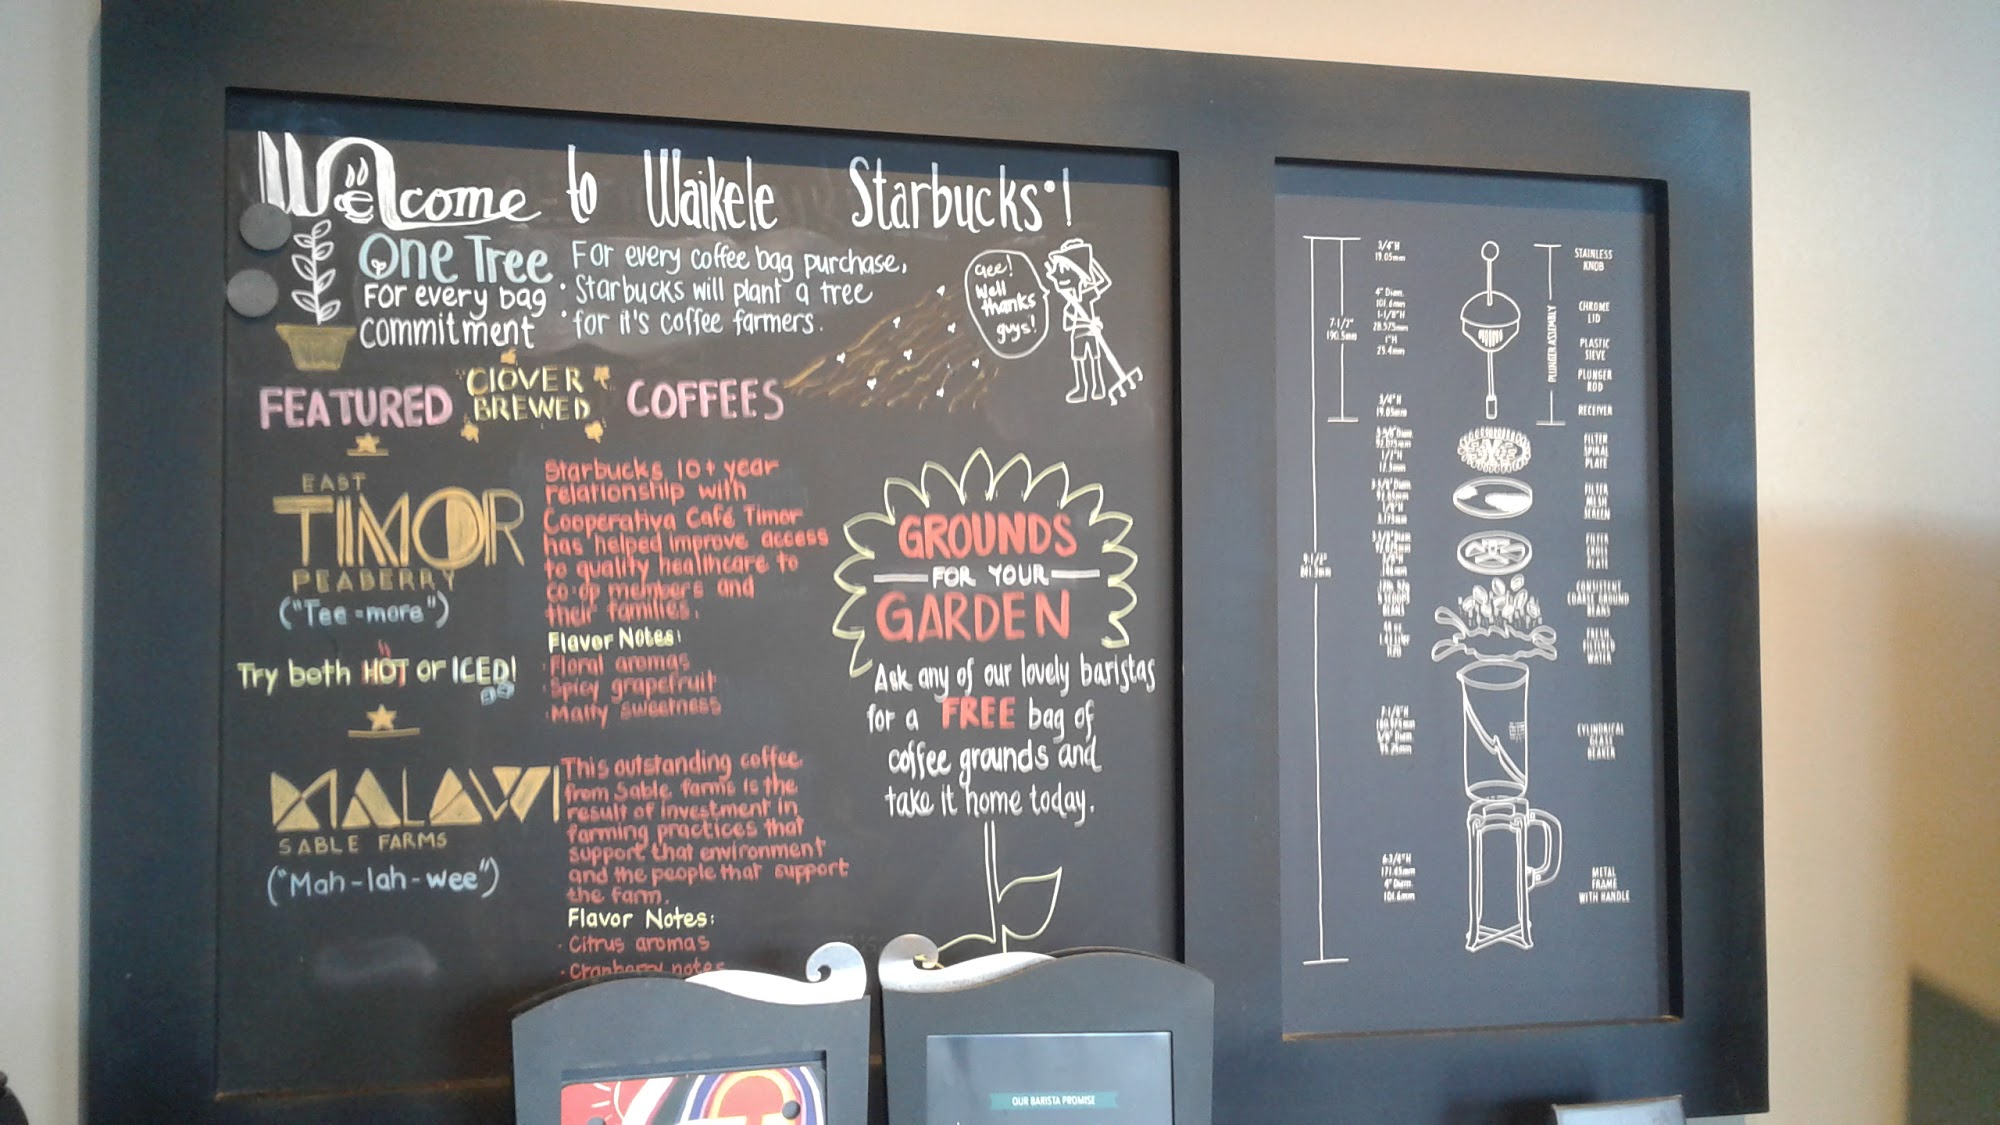 Welcome to Waikele Starbucks!
One Tree
For every bag
commitment
For every coffee bag purchase,
Starbucks will plant a tree
for it's coffee farmers.
Gee!
Well
thanks
guys!
FEATURED CLOVER BREWED COFFEES
EAST
TIMOR
PEABERRY
("Tee-more")
Starbucks 10+ year
relationship with
Cooperativa Café Timor
has helped improve access
to quality healthcare to
co-op members and
their families.
Flavor Notes:
· Floral aromas
· Spicy grapefruit
· Malty sweetness
Try both HOT or ICED!
MALAWI
SABLE FARMS
("Mah-lah-wee")
This outstanding coffee
from Sable farms is the
result of investment in
farming practices that
support that environment
and the people that support
the farm.
Flavor Notes:
· Citrus aromas
· Cranberry notes
GROUNDS
FOR YOUR
GARDEN
Ask any of our lovely baristas
for a FREE bag of
coffee grounds and
take it home today.
OUR BARISTA PROMISE
3/4"H
19.05mm
4" Diam.
101.6mm
1-1/8"H
28.575mm
1"H
25.4mm
3/4"H
19.05mm
7-1/2"
190.5mm
9-1/2"
241.3mm
6-3/4"H
171.45mm
4" Diam.
101.6mm
PLUNGER ASSEMBLY
STAINLESS
KNOB
CHROME
LID
PLASTIC
SIEVE
PLUNGER
ROD
RECEIVER
FILTER
SPIRAL
PLATE
FILTER
MESH
SCREEN
FILTER
CROSS
PLATE
CONSISTENT
COARSE GROUND
BEANS
FRESH
FILTERED
WATER
CYLINDRICAL
GLASS
BEAKER
METAL
FRAME
WITH HANDLE